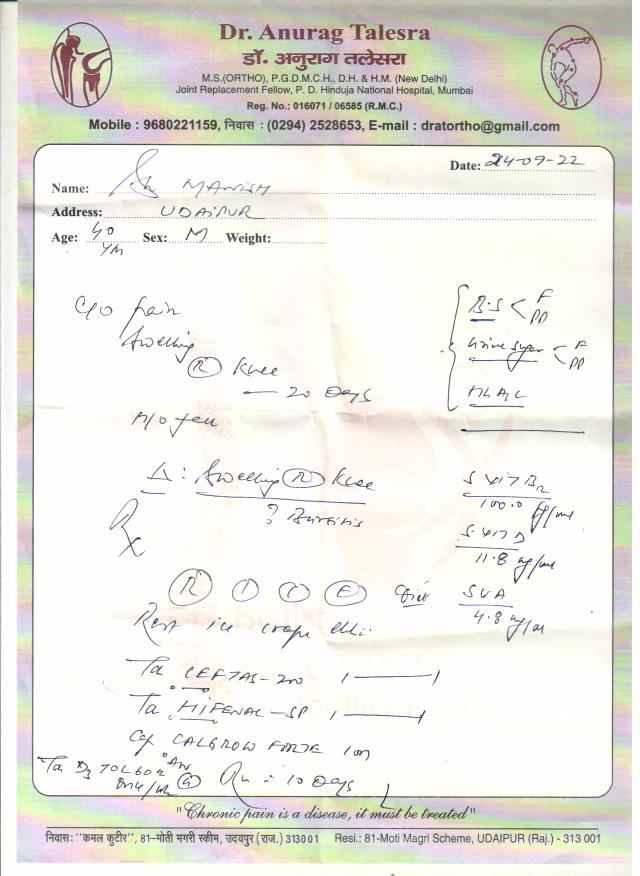 Dr. Anurag Talesra
डॉ. अनुराग तलेसरा
M.S.(ORTHO), P.G.D.M.C.H., D.H. & H.M. (New Delhi)
Joint Replacement Fellow, P. D. Hinduja National Hospital, Mumbai
Reg. No.: 016071 / 06585 (R.M.C.)
Mobile : 9680221159, निवास : (0294) 2528653, E-mail : dratortho@gmail.com
Date: 24-09-22
Name: Sh MANISH
Address: UDAIPUR
Age: 40 Sex: M Weight:
C/o pain
Swelling
(R) Knee
— 20 Days
B.S < F PP
Urine sugar < F PP
H/o
Δ: Swelling (R) Knee
? Bursitis
S VIT B12
100.0
S. VIT D
11.8 ng/ml
SUA
4.8
Rx
R I C E
Rest ice crape
Ta CEFTAS-200 1——1
Ta HIFENAC-SP 1——1
Cap CALGROW FORTE
Ta D3
10 Days
"Chronic pain is a disease, it must be treated"
निवास: "कमल कुटीर", 81-मोती मगरी स्कीम, उदयपुर (राज.) 313001 Resi.: 81-Moti Magri Scheme, UDAIPUR (Raj.) - 313 001